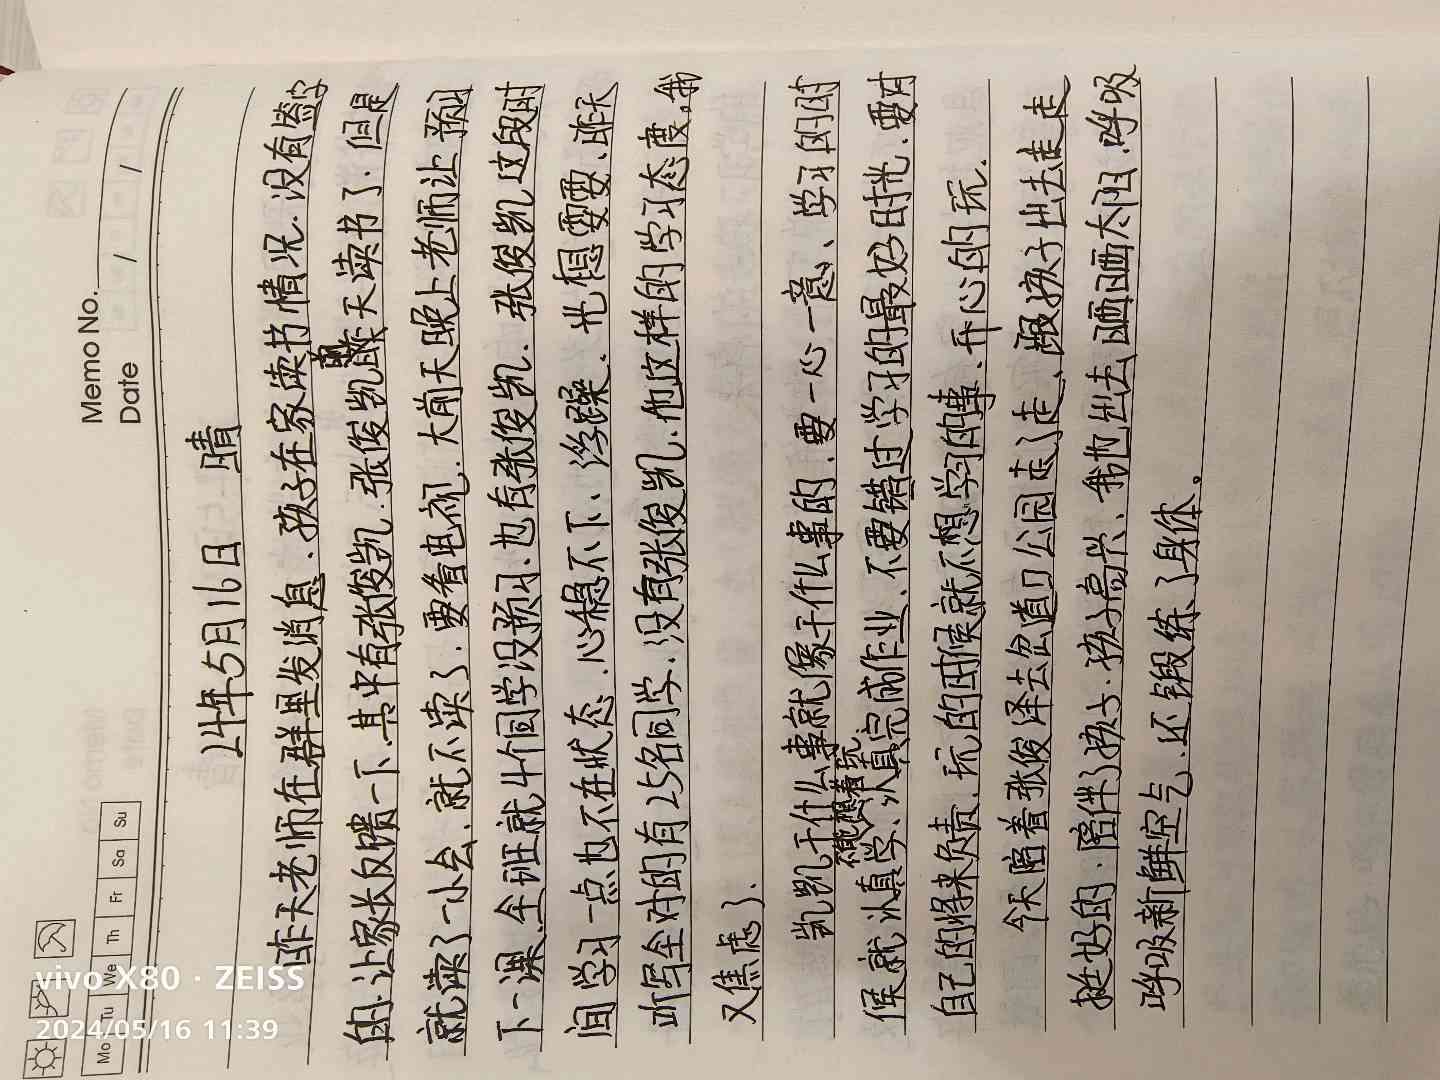 Memo No.
Date / /
Mo Tu We Th Fr Sa Su
24年5月16日 晴
昨天老师在群里发消息.孩子在家读书情况.没有签字
的.让家长反馈一下.其中有张俊凯.张俊凯昨天读书了.但是
就读了一小会、就不读了.要看电视.大前天晚上老师让预习
下一课.全班就4个同学没预习.也有张俊凯.张俊凯这段时
间学习一点也不在状态.心稳不下、浮躁.光想耍耍.昨天
听写全对的有25名同学.没有张俊凯.他这样的学习态度.我
又焦虑了.
凯凯干什么事就像干什么事的.要一心一意、学习的时
候就认真学、不能想着玩 认真完成作业、不要错过学习的最好时光.要对
自己的将来负责.玩的时候就不想学习的事.开心的玩.
今天陪着张俊泽去岔道口公园走了走、跟孩子出去走走
挺好的.陪伴了孩子.孩子高兴、我也出去晒晒太阳.呼吸
呼吸新鲜空气.还锻练了身体。
vivo X80 · ZEISS
2024/05/16 11:39